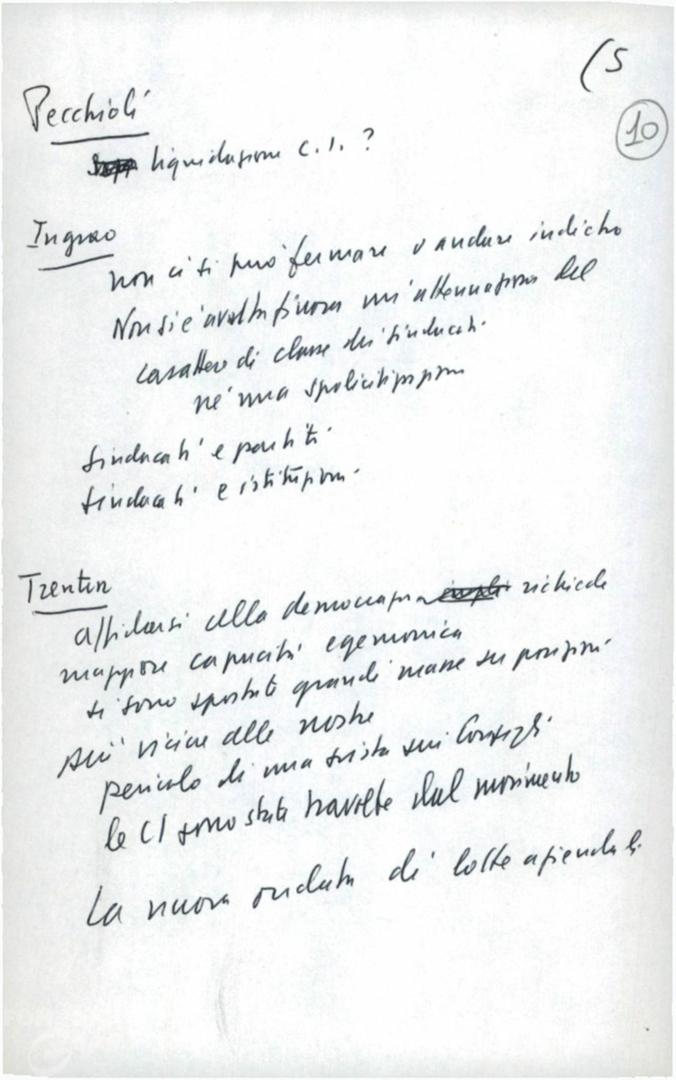 (5
10
Pecchioli
liquidazione C.I. ?
Ingrao
non ci si può fermare o andare indietro
Non si è avuta finora un'attenuazione del
carattere di classe dei sindacati
né una spoliticizzazione
sindacati e partiti
sindacati e istituzioni
Trentin
affidarsi alla democrazia richiede
maggiore capacità egemonica
si sono spostate grandi masse su posizioni
più vicine alle nostre
pericolo di una svista sui Consigli
le CI sono state travolte dal movimento
La nuova ondata di lotte aziendali